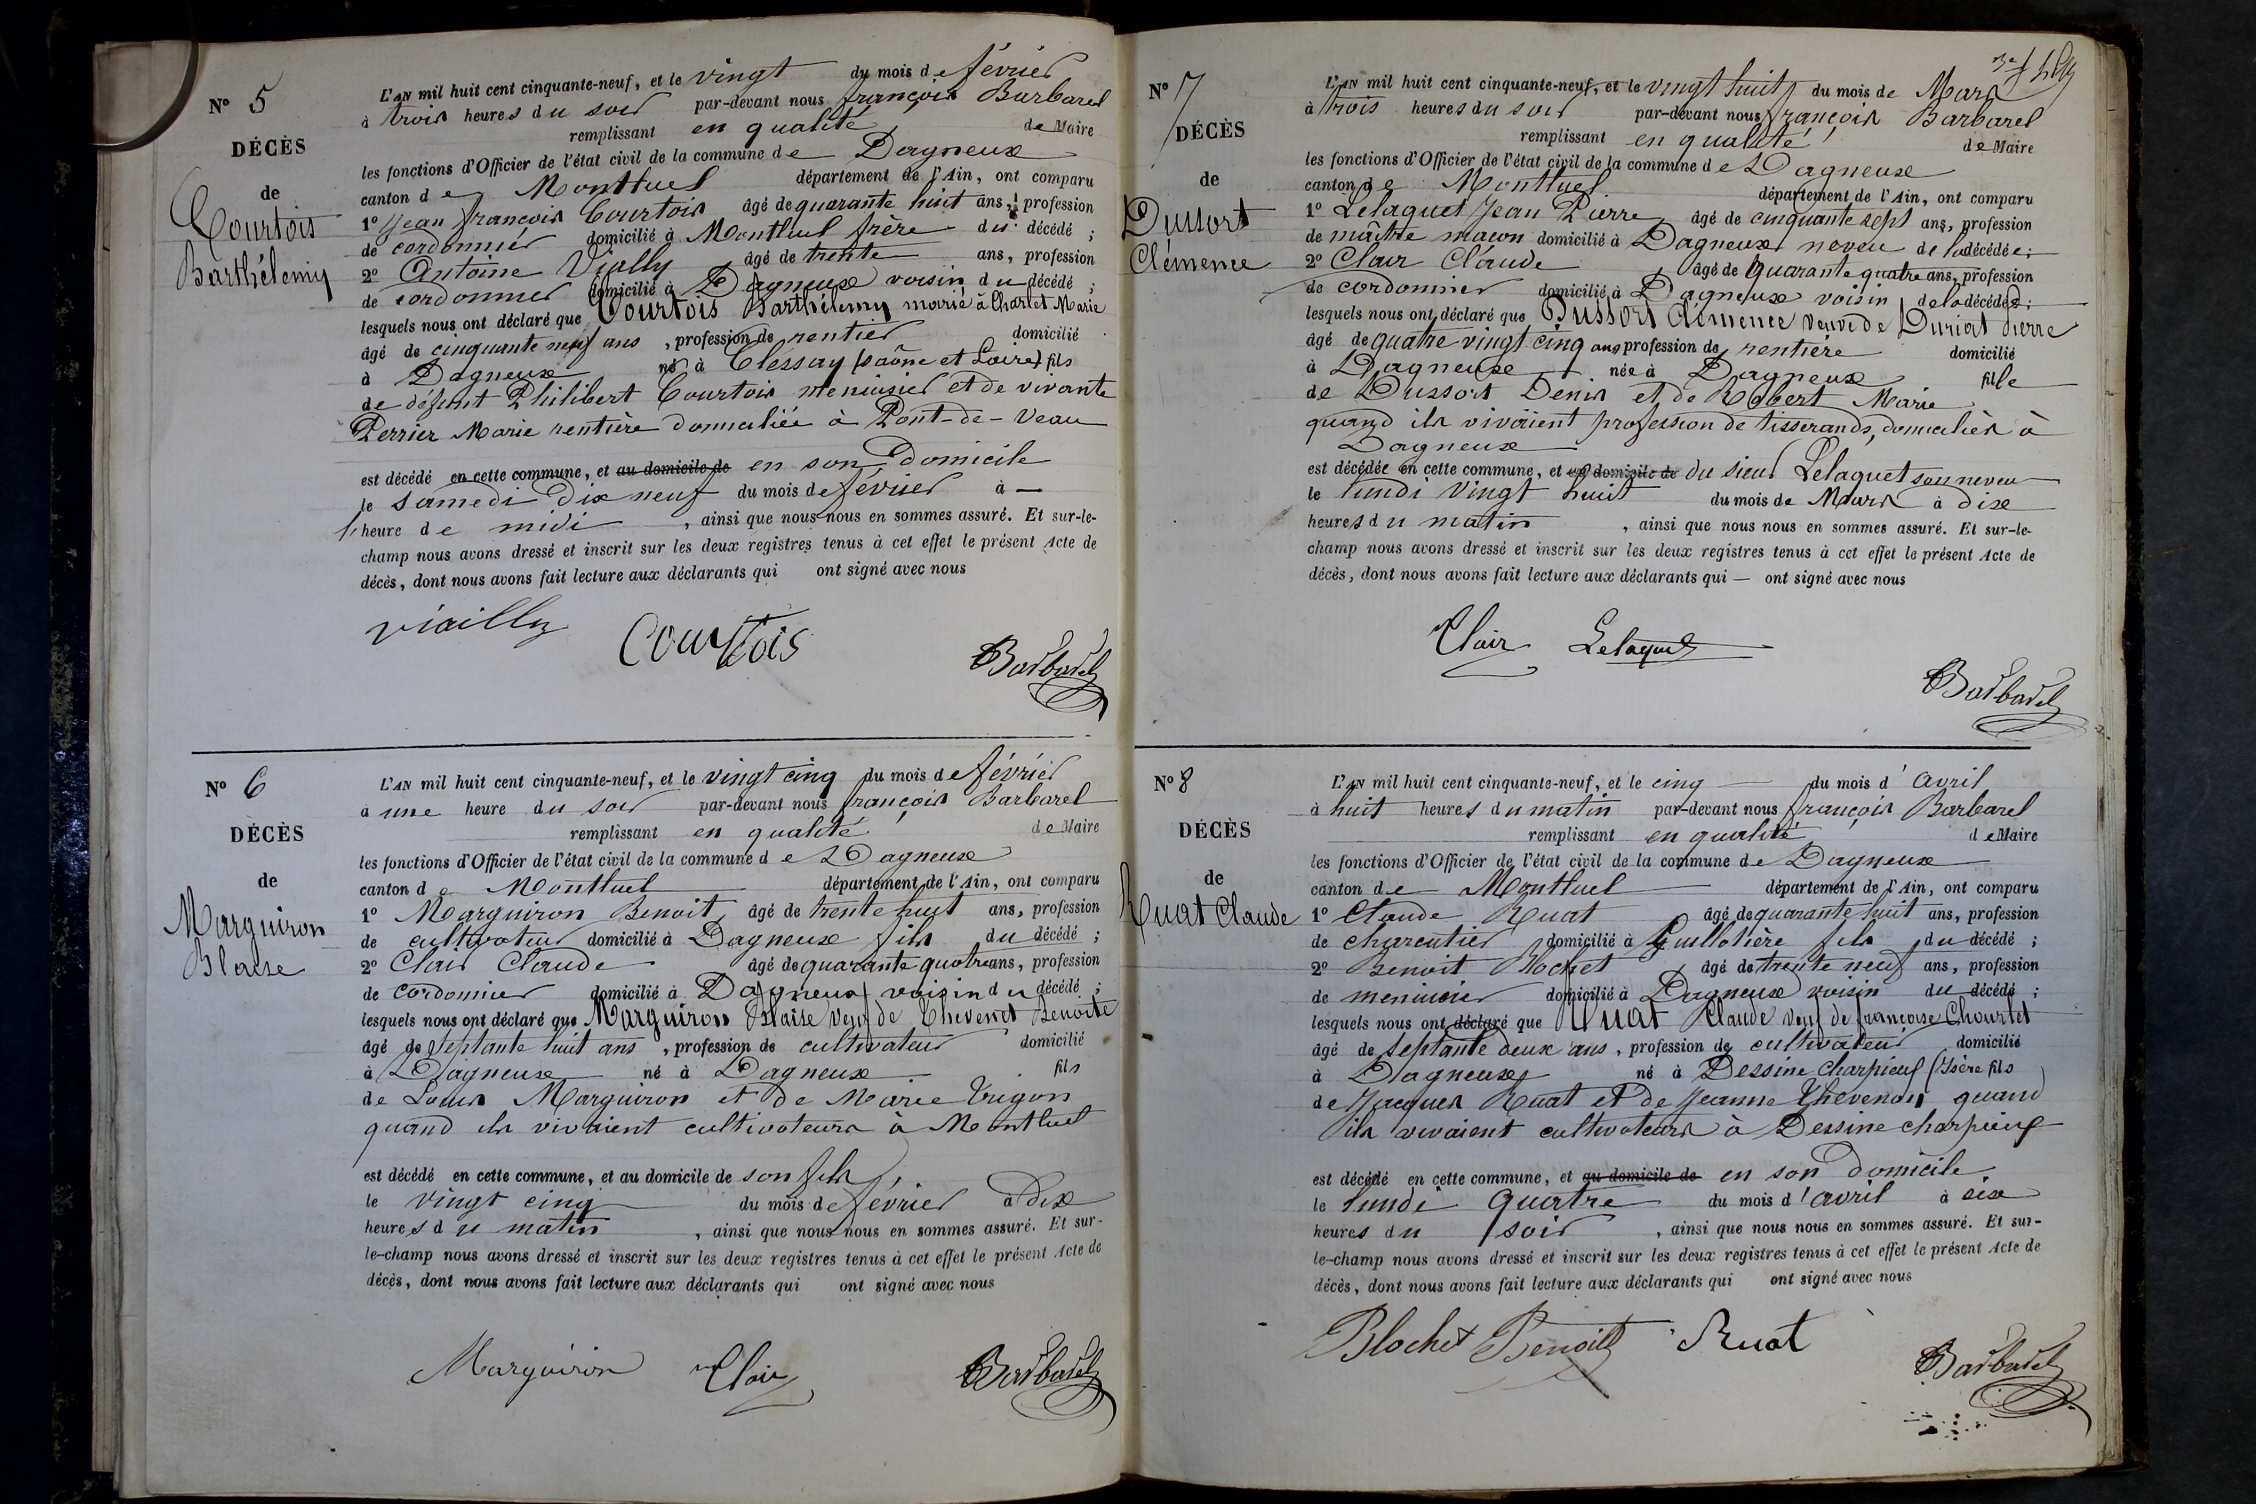 N° 5
DÉCÈS
de
Courtois
Barthélemy
L'AN mil huit cent cinquante-neuf, et le vingt du mois de février
à trois heures du soir par-devant nous françois Barbarel
remplissant en qualité de Maire
les fonctions d'Officier de l'état civil de la commune de Dagneux
canton de Montluel département de l'Ain, ont comparu
1° Jean françois Courtois âgé de quarante huit ans, profession
de cordonnier domicilié à Montluel frère du décédé ;
2° Antoine Vially âgé de trente ans, profession
de cordonnier domicilié à Dagneux voisin du décédé ;
lesquels nous ont déclaré que Courtois Barthélemy marié à Charlet Marie
âgé de cinquante neuf ans , profession de rentier domicilié
à Dagneux né à Clessay (saône et Loire) fils
de défunt Philibert Courtois menuisier et de vivante
Perrier Marie rentière domiciliée à Pont-de-Veau
est décédé en cette commune, et au domicile de en son Domicile
le samedi dix neuf du mois de février à —
heure de midi , ainsi que nous nous en sommes assuré. Et sur-le-
champ nous avons dressé et inscrit sur les deux registres tenus à cet effet le présent Acte de
décès, dont nous avons fait lecture aux déclarants qui ont signé avec nous
viailly Courtois Barbarel
N° 6
DÉCÈS
de
Marguiron
Blaise
L'AN mil huit cent cinquante-neuf, et le vingt cinq du mois de février
à une heure du soir par-devant nous françois Barbarel
remplissant en qualité de Maire
les fonctions d'Officier de l'état civil de la commune de Dagneux
canton de Montluel département de l'Ain, ont comparu
1° Marguiron Benoit âgé de trente huit ans, profession
de cultivateur domicilié à Dagneux fils du décédé ;
2° Clair Claude âgé de quarante quatre ans, profession
de cordonnier domicilié à Dagneux voisin du décédé ;
lesquels nous ont déclaré que Marguiron Blaise veuf de Thevenet Benoite
âgé de septante huit ans , profession de cultivateur domicilié
à Dagneux né à Dagneux fils
de Louis Marguiron et de Marie Trigon
quand ils vivaient cultivateurs à Montluel
est décédé en cette commune, et au domicile de son fils
le vingt cinq du mois de février à dix
heures du matin , ainsi que nous nous en sommes assuré. Et sur-
le-champ nous avons dressé et inscrit sur les deux registres tenus à cet effet le présent Acte de
décès, dont nous avons fait lecture aux déclarants qui ont signé avec nous
Marguiron Clair Barbarel
N° 7
DÉCÈS
de
Dussort
Clémence
L'AN mil huit cent cinquante-neuf, et le vingt huit du mois de Mars
à trois heures du soir par-devant nous françois Barbarel
remplissant en qualité de Maire
les fonctions d'Officier de l'état civil de la commune de Dagneux
canton de Montluel département de l'Ain, ont comparu
1° Lelaquet Jean Pierre âgé de cinquante sept ans, profession
de maître maçon domicilié à Dagneux neveu de la décédée ;
2° Clair Claude âgé de quarante quatre ans, profession
de cordonnier domicilié à Dagneux voisin de la décédée ;
lesquels nous ont déclaré que Dussort Clémence veuve de Duriat Pierre
âgé de quatre vingt cinq ans profession de rentière domicilié
à Dagneux née à Dagneux fille
de Dussort Denis et de Robert Marie
quand ils vivaient profession de tisserands, domiciliés à
Dagneux
est décédée en cette commune, et au domicile de du sieur Lelaquet son neveu
le lundi vingt huit du mois de Mars à dix
heures du matin , ainsi que nous nous en sommes assuré. Et sur-le-
champ nous avons dressé et inscrit sur les deux registres tenus à cet effet le présent Acte de
décès, dont nous avons fait lecture aux déclarants qui — ont signé avec nous
Clair Lelaquet
Barbarel
N° 8
DÉCÈS
de
Ruat Claude
L'AN mil huit cent cinquante-neuf, et le cinq du mois d'avril
à huit heures du matin par-devant nous françois Barbarel
remplissant en qualité de Maire
les fonctions d'Officier de l'état civil de la commune de Dagneux
canton de Montluel département de l'Ain, ont comparu
1° Claude Ruat âgé de quarante huit ans, profession
de charcutier domicilié à Guillotière fils du décédé ;
2° Benoit Blochet âgé de trente neuf ans, profession
de menuisier domicilié à Dagneux voisin du décédé ;
lesquels nous ont déclaré que Ruat Claude veuf de françoise Chourlet
âgé de septante deux ans , profession de cultivateur domicilié
à Dagneux né à Dessine Charpieux (Isère fils
de Jacques Ruat et de Jeanne Thevenon quand
ils vivaient cultivateurs à Dessine charpieux
est décédé en cette commune, et au domicile de en son Domicile
le lundi quatre du mois d'avril à six
heures du soir , ainsi que nous nous en sommes assuré. Et sur-
le-champ nous avons dressé et inscrit sur les deux registres tenus à cet effet le présent Acte de
décès, dont nous avons fait lecture aux déclarants qui ont signé avec nous
Blochet Benoit Ruat
Barbarel